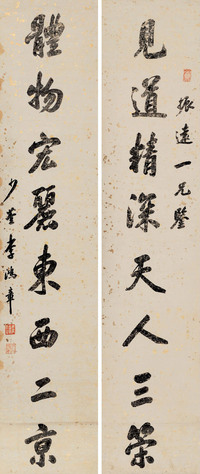 振遠一兄鑒
見道精深天人三策
體物宏麗東西二京
少荃李鴻章